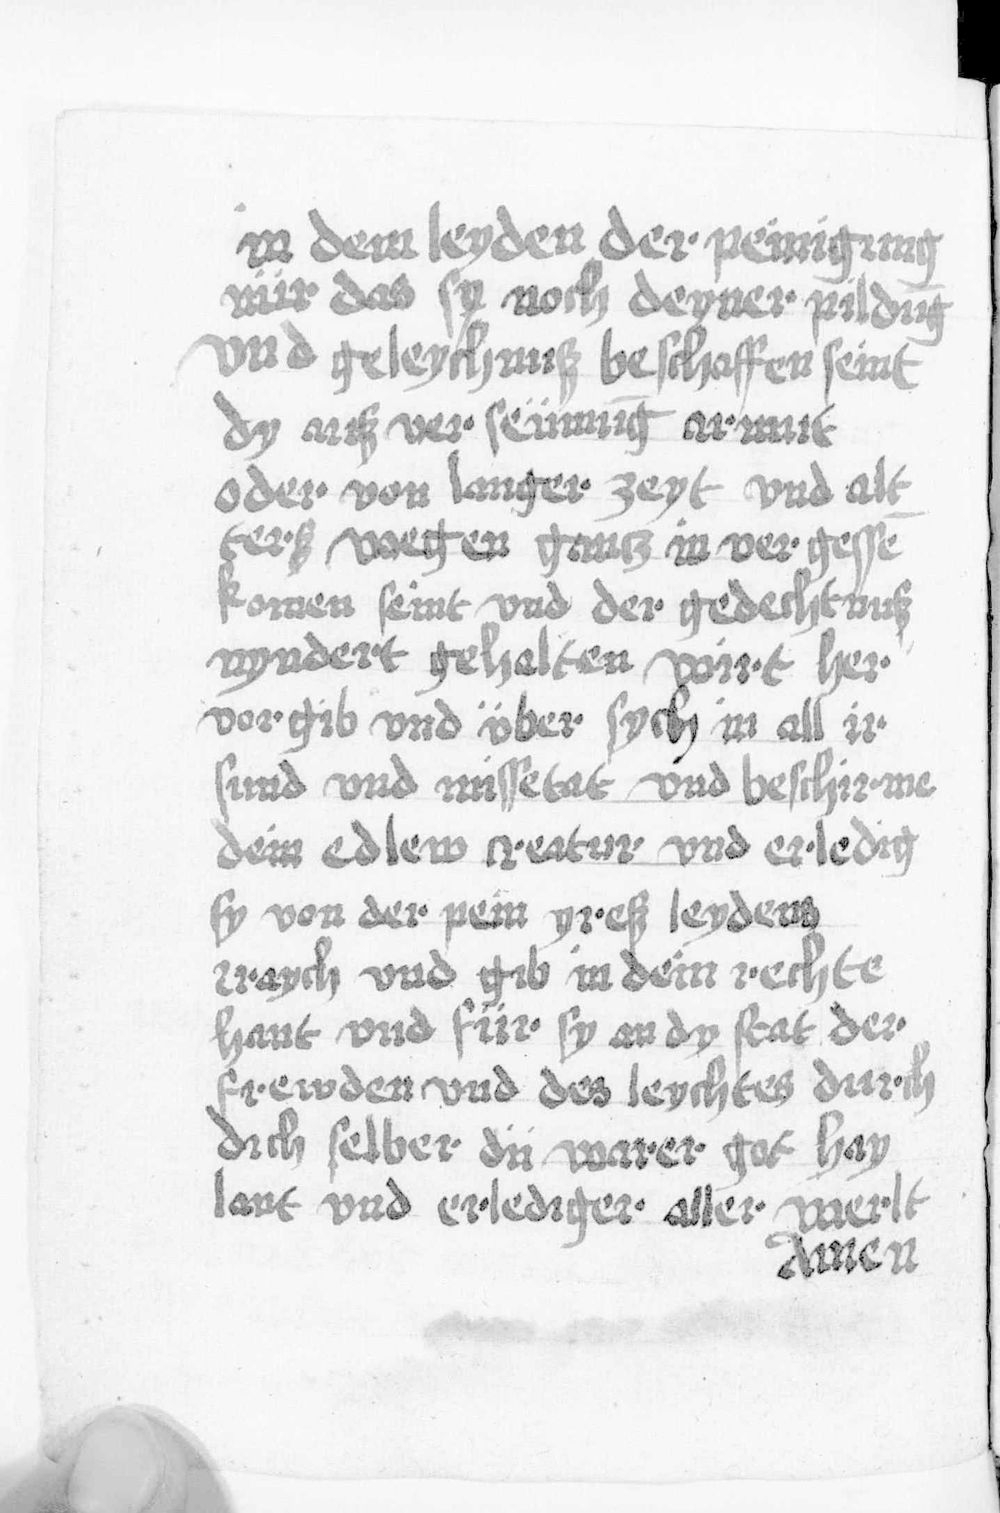 in dem leyden der peinigung
nür das sy noch deyner pildūg
vnd geleychnuß beschaffen seint
dy auß ver seümūg armut
oder von langer zeyt vnd alt
terß wegen gantz in ver gessē
komen seint vnd der gedechtnuß
nyndert gehalten wirt her
vor gib vnd über sych in all ir
sund vnd missetat vnd beschirme
dein edlew creatur vnd erledig
sy von der pein yreß leydens
rraych vnd gib in dein rechte
hant vnd für sy an dy stat der
frewden vnd des leychtes durch
dich selber dü warer got hay
lant vnd erlediger aller werlt
Amen